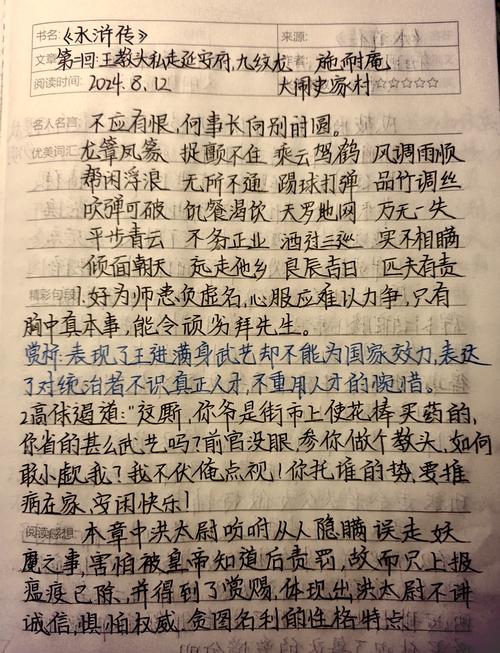 书名:《水浒传》 来源:
文章:第二回:王教头私走延安府,九纹龙 作者: 施耐庵
阅读时间: 2024.8.12 大闹史家村 ☆☆☆☆☆
名人名言: 不应有恨,何事长向别时圆。
优美词汇: 龙章凤篆 捉颤不住 乘云驾鹤 风调雨顺
帮闲浮浪 无所不通 踢球打弹 品竹调丝
吹弹可破 饥餐渴饮 天罗地网 万无一失
平步青云 不务正业 酒对三巡 实不相瞒
倾面朝天 充走他乡 良辰吉日 匹夫有责
精彩句段: 1.好为师患负虚名,心服应难以力争,只有
胸中真本事,能令顽劣拜先生。
赏析:表现了王进满身武艺却不能为国家效力,表达
了对统治者不识真正人才,不重用人才的惋惜。
2.高俅道道:"这厮,你爷是街市上使花棒买药的,
你省的甚么武艺吗?前官没眼,参你做个教头,如何
敢小觑我?我不伏俺点视!你托谁的势,要推
病在家,安闲快乐!
阅读感想: 本章中洪太尉吩咐从人隐瞒误走妖
魔之事,害怕被皇帝知道后责罚,故而只上报
瘟疫已除,并得到了赏赐,体现出洪太尉不讲
诚信,惧怕权威,贪图名利的性格特点